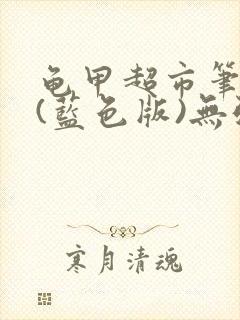 龟甲超市筆
(藍色版)無
寒月清魂